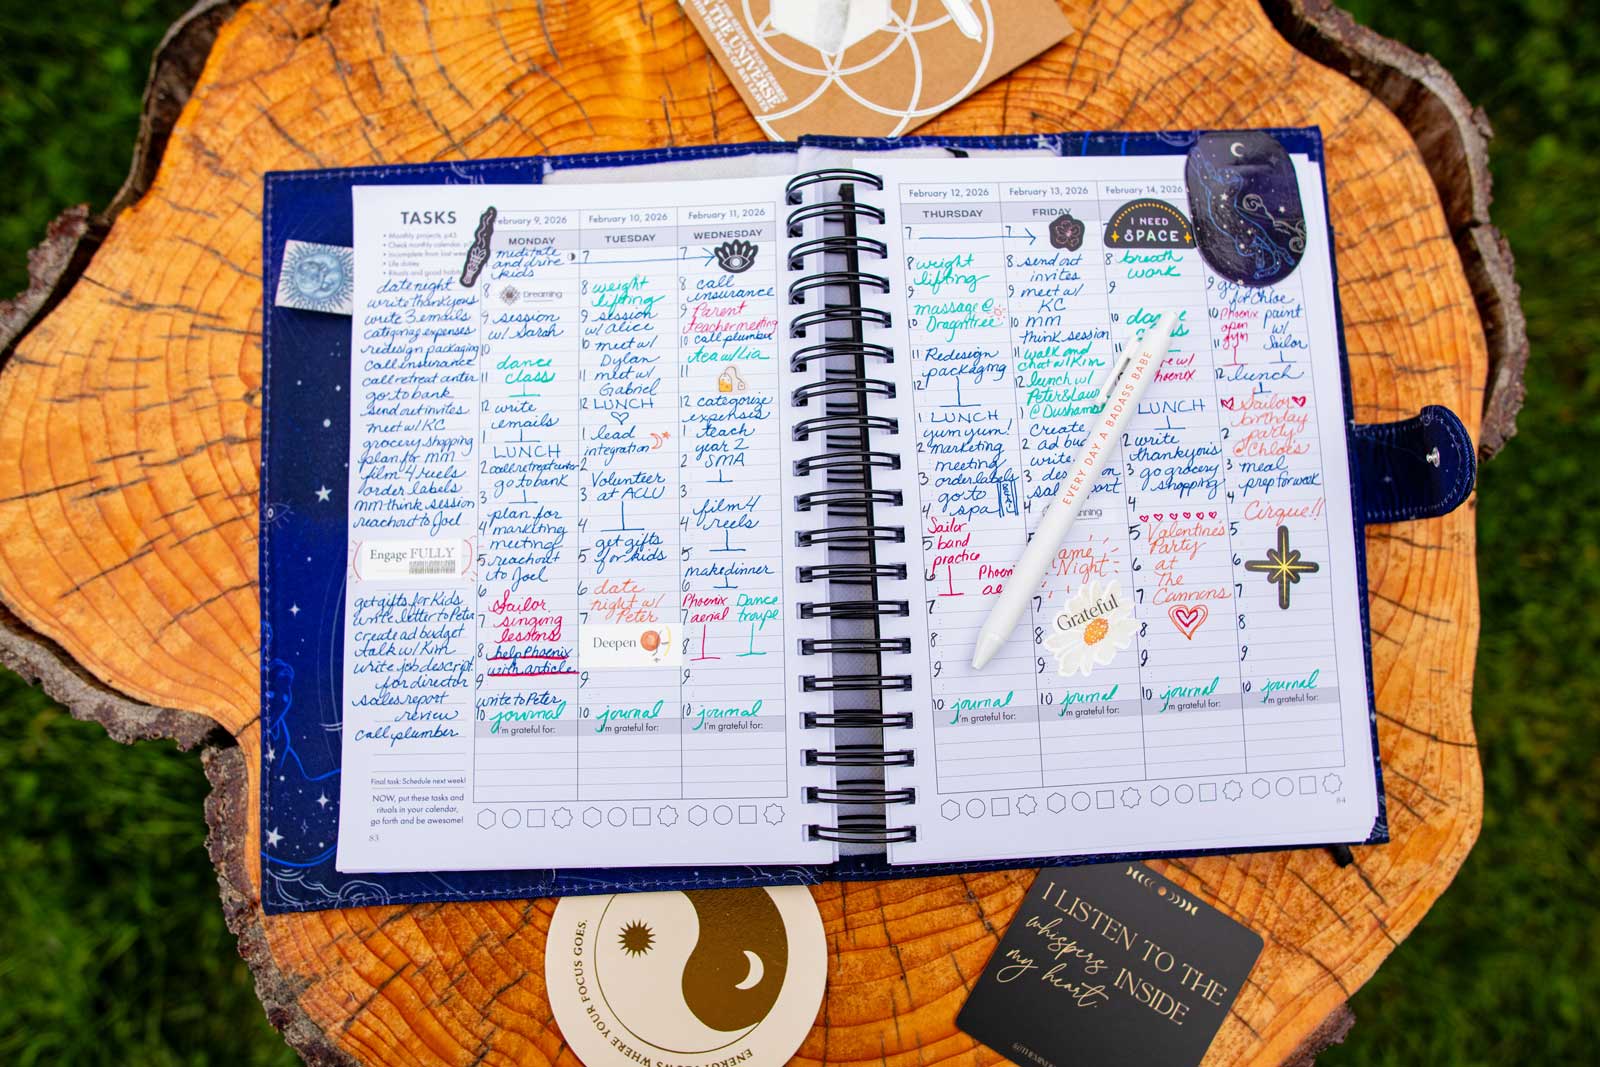 IN THE UNIVERSE
TASKS
• Monthly projects, p43
• Check monthly calendar, p
• Incomplete from last wee
• Life datey
• Rituals and good habits
date night
write thank yous
write 3 emails
categorize expenses
redesign packaging
call insurance
call retreat center
go to bank
send out invites
meet w/ KC
grocery shopping
plan for mm
film 4 reels
order labels
mm think session
reach out to Joel
Engage FULLY
get gifts for kids
write letter to Peter
create ad budget
talk w/ Kim
write job descript.
for director
sales report
review
call plumber
Final task: Schedule next week!
NOW, put these tasks and
rituals in your calendar,
go forth and be awesome!
83
ebruary 9, 2026
MONDAY
meditate
and drive
kids
8 Dreaming
9 session
w/ Sarah
10
dance
11 class
12 write
emails
1
LUNCH
2 call retreat center
go to bank
3
plan for
4 marketing
meeting
5 reach out
to Joel
6
Sailor
7 singing
lessons
8 help Phoenix
with article
9
write to Peter
10 journal
I'm grateful for:
February 10, 2026
TUESDAY
7
8 weight
lifting
9 session
w/ alice
10 meet w/
Dylan
11 meet w/
Gabriel
12 LUNCH
1 lead
integration
2
Volunteer
3 at ACLU
4
get gifts
5 for kids
6 date
night w/
7 Peter
Deepen
9
10 journal
I'm grateful for:
February 11, 2026
WEDNESDAY
7
8 call
insurance
9 Parent
teacher meeting
10 call plumber
tea w/ Lia
11
12 categorize
expenses
1 teach
year 2
2 SMA
3
film 4
4 reels
5
make dinner
6
Phoenix Dance
7 aerial troupe
8
9
10 journal
I'm grateful for:
February 12, 2026
THURSDAY
7
8 weight
lifting
9
massage @
10 Dragontree
11 Redesign
packaging
12
1 LUNCH
yum yum!
2 marketing
meeting
3 order labels
go to
4 spa
Sailor
5 band
practice
6 Phoeni
ae
7
8
9
10 journal
I'm grateful for:
February 13, 2026
FRIDAY
7
8 send out
invites
9 meet w/
KC
10 mm
think session
11 walk and
chat w/ Kim
12 lunch w/
Peter & Law
1 @ Dusham
create
2 ad bud
write
3 des on
sal port
4 nning
5
ame
Night
7 Grateful
8
9
10 journal
I'm grateful for:
February 14, 202
I NEED
SPACE
8 breath
work
9
10
11
hoenix
LUNCH
2 write
thank yous
3 go grocery
shopping
4
5 Valentine's
Party
6 at
The
7 Cannons
8
9
10 journal
I'm grateful for:
9
for Chloe
10 Phoenix paint
open w/
11 gym Sailor
12 lunch
Sailor
birthday
2 party
@ Chloe's
3 meal
prep for work
4
Cirque!!
5
6
7
8
9
10 journal
I'm grateful for:
84
EVERY DAY A BADASS BABE
WHERE YOUR FOCUS GOES.
I LISTEN TO THE
whispers INSIDE
my heart.